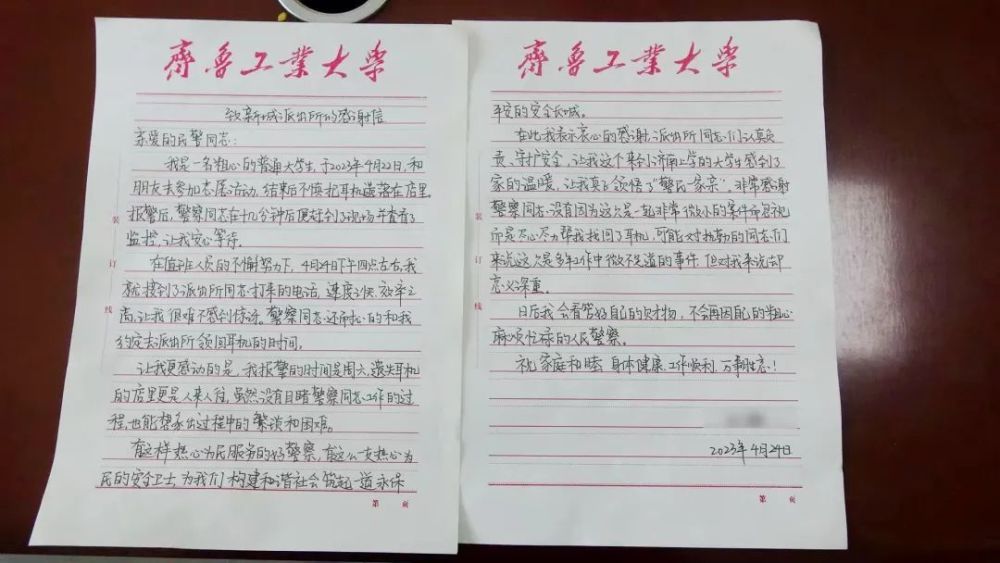 齊魯工業大學
致新城派出所的感谢信
亲爱的民警同志:
我是一名粗心的普通大学生,于2023年4月22日,和
朋友去参加志愿活动,结束后不慎把耳机遗落在店里
报警后,警察同志在十几分钟后便赶到了现场并查看了
监控,让我安心等待。
在值班人员的不懈努力下,4月24日下午四点左右,我
就接到了派出所同志打来的电话,速度之快,效率之
高,让我很难不感到惊讶。警察同志还耐心的和我
约定去派出所领回耳机的时间。
让我更感动的是,我报警的时间是周六,遗失耳机
的店里更是人来人往,虽然没有目睹警察同志工作的过
程,也能想象出过程中的繁琐和困难。
有这样热心为民服务的好警察,有这么一支热心为
民的安全卫士,为我们构建和谐社会筑起一道永保
第 页
装
订
线
齊魯工業大學
平安的安全长城。
在此我表示衷心的感谢,派出所同志们认真负
责、守护安全,让我这个来到济南上学的大学生感到了
家的温暖,让我真正领悟了“警民一家亲”。非常感谢
警察同志没有因为这次是一起非常微小的案件而忽视
而是尽心尽力帮我找回了耳机,可能对执勤的同志们
来说这次是多年工作中微不足道的事件,但对我来说却
意义深重。
日后我会看管好自己的财物,不会再因自己的粗心
麻烦忙碌的人民警察。
祝 家庭和睦 身体健康 工作顺利 万事胜意!
2023年4月24日
第 页
装
订
线